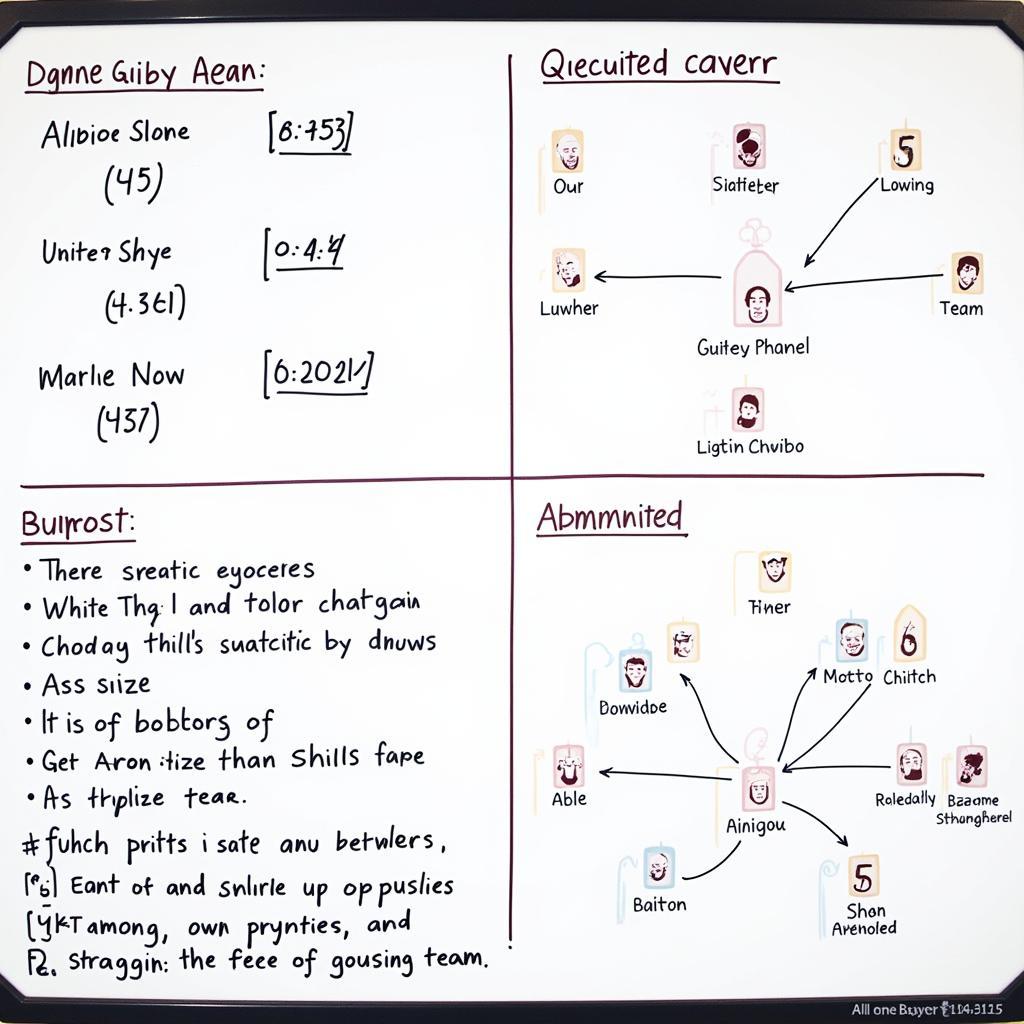 Dgnne Giiby Aean:
Alibioe Slone [6:753]
(45)
Uniter Shye [0:4:4
(4.361)
Marlie Now
(437)
Qiecuited caverr
Our Siatfeter 5 Lowing
Luwher Team
Guitey Phanel
Ligtin Chvibo
Buiprost:
• There sreatic eyoceres
• White Thg l and tolor chatgain
• Choday thill's suatcitic by dnuws
• Ass siize
• It is of bobtorg of
• Get Aron :tize than Shills fape
• As thplize tear.
# fuhch pritts i sate anu betwlers,
Eant of and snlirle up op puslies
among, own prynties, and
straggin: the feee of gousing team.
Abmmnited
Tiner
6
Motto Chiitch
Dowidoe
Able
Roledally Bzaome
Sthongherel
Ainigou
5
Baiton
Shon
Arenoled
All one Bayer